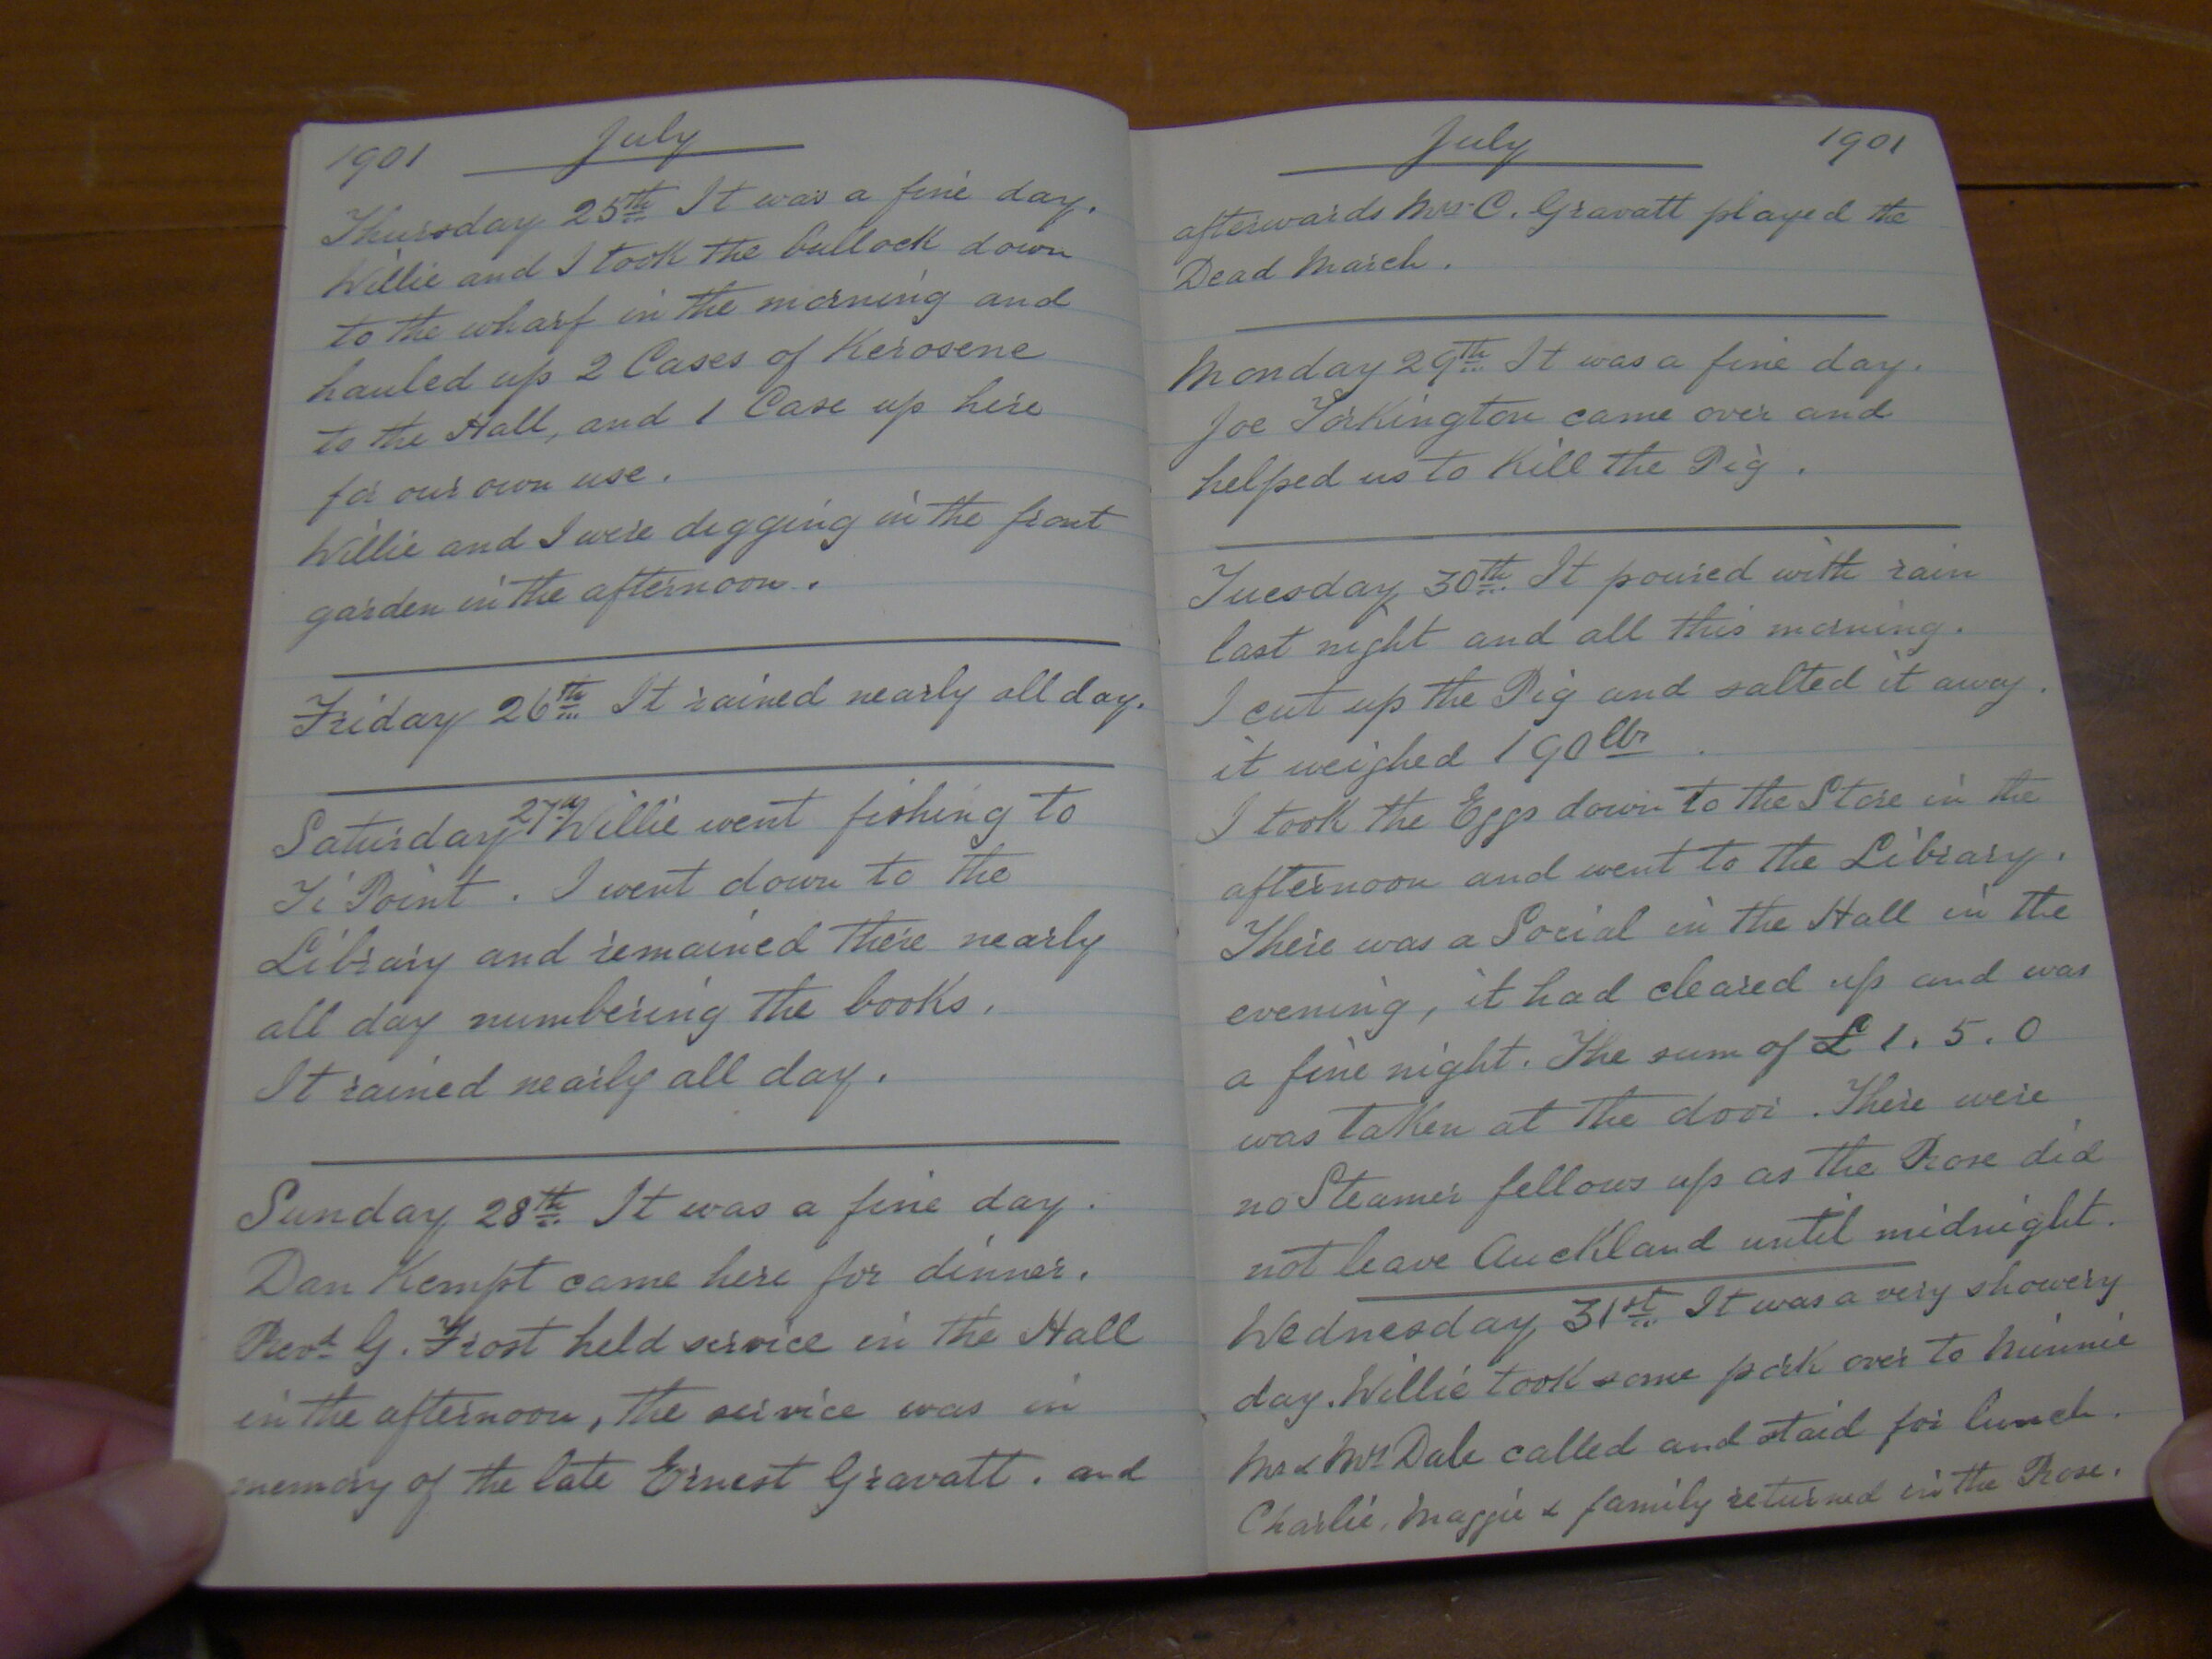 1901 July
Thursday 25th It was a fine day.
Willie and I took the bullock down
to the wharf in the morning and
hauled up 2 Cases of Kerosene
to the Hall, and 1 Case up here
for our own use.
Willie and I were digging in the front
garden in the afternoon.
Friday 26th It rained nearly all day.
Saturday 27th Willie went fishing to
Ti Point. I went down to the
Library and remained there nearly
all day numbering the books.
It rained nearly all day.
Sunday 28th It was a fine day.
Dan Kempt came here for dinner.
Revd G. Frost held service in the Hall
in the afternoon, the service was in
memory of the late Ernest Gravatt. and
July 1901
afterwards Mrs C. Gravatt played the
Dead March.
Monday 29th It was a fine day.
Joe Torkington came over and
helped us to Kill the Pig.
Tuesday 30th It poured with rain
last night and all this morning.
I cut up the Pig and salted it away.
it weighed 190 lbs.
I took the Eggs down to the Store in the
afternoon and went to the Library.
There was a Social in the Hall in the
evening, it had cleared up and was
a fine night. The sum of £1.5.0
was taken at the door. There were
no Steamer fellows up as the Rose did
not leave Auckland until midnight.
Wednesday 31st It was a very showery
day. Willie took some pork over to Minnie
Mr & Mrs Dale called and staid for lunch.
Charlie, Maggie & family returned in the Rose.